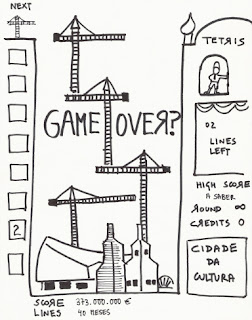 NEXT
TETRIS
GAME OVER?
02
LINES
LEFT
HIGH SCORE
A SABER
ROUND ∞
CREDITS 0
2
CIDADE
DA
CULTURA
SCORE 373.000.000 €
LINES 90 MESES